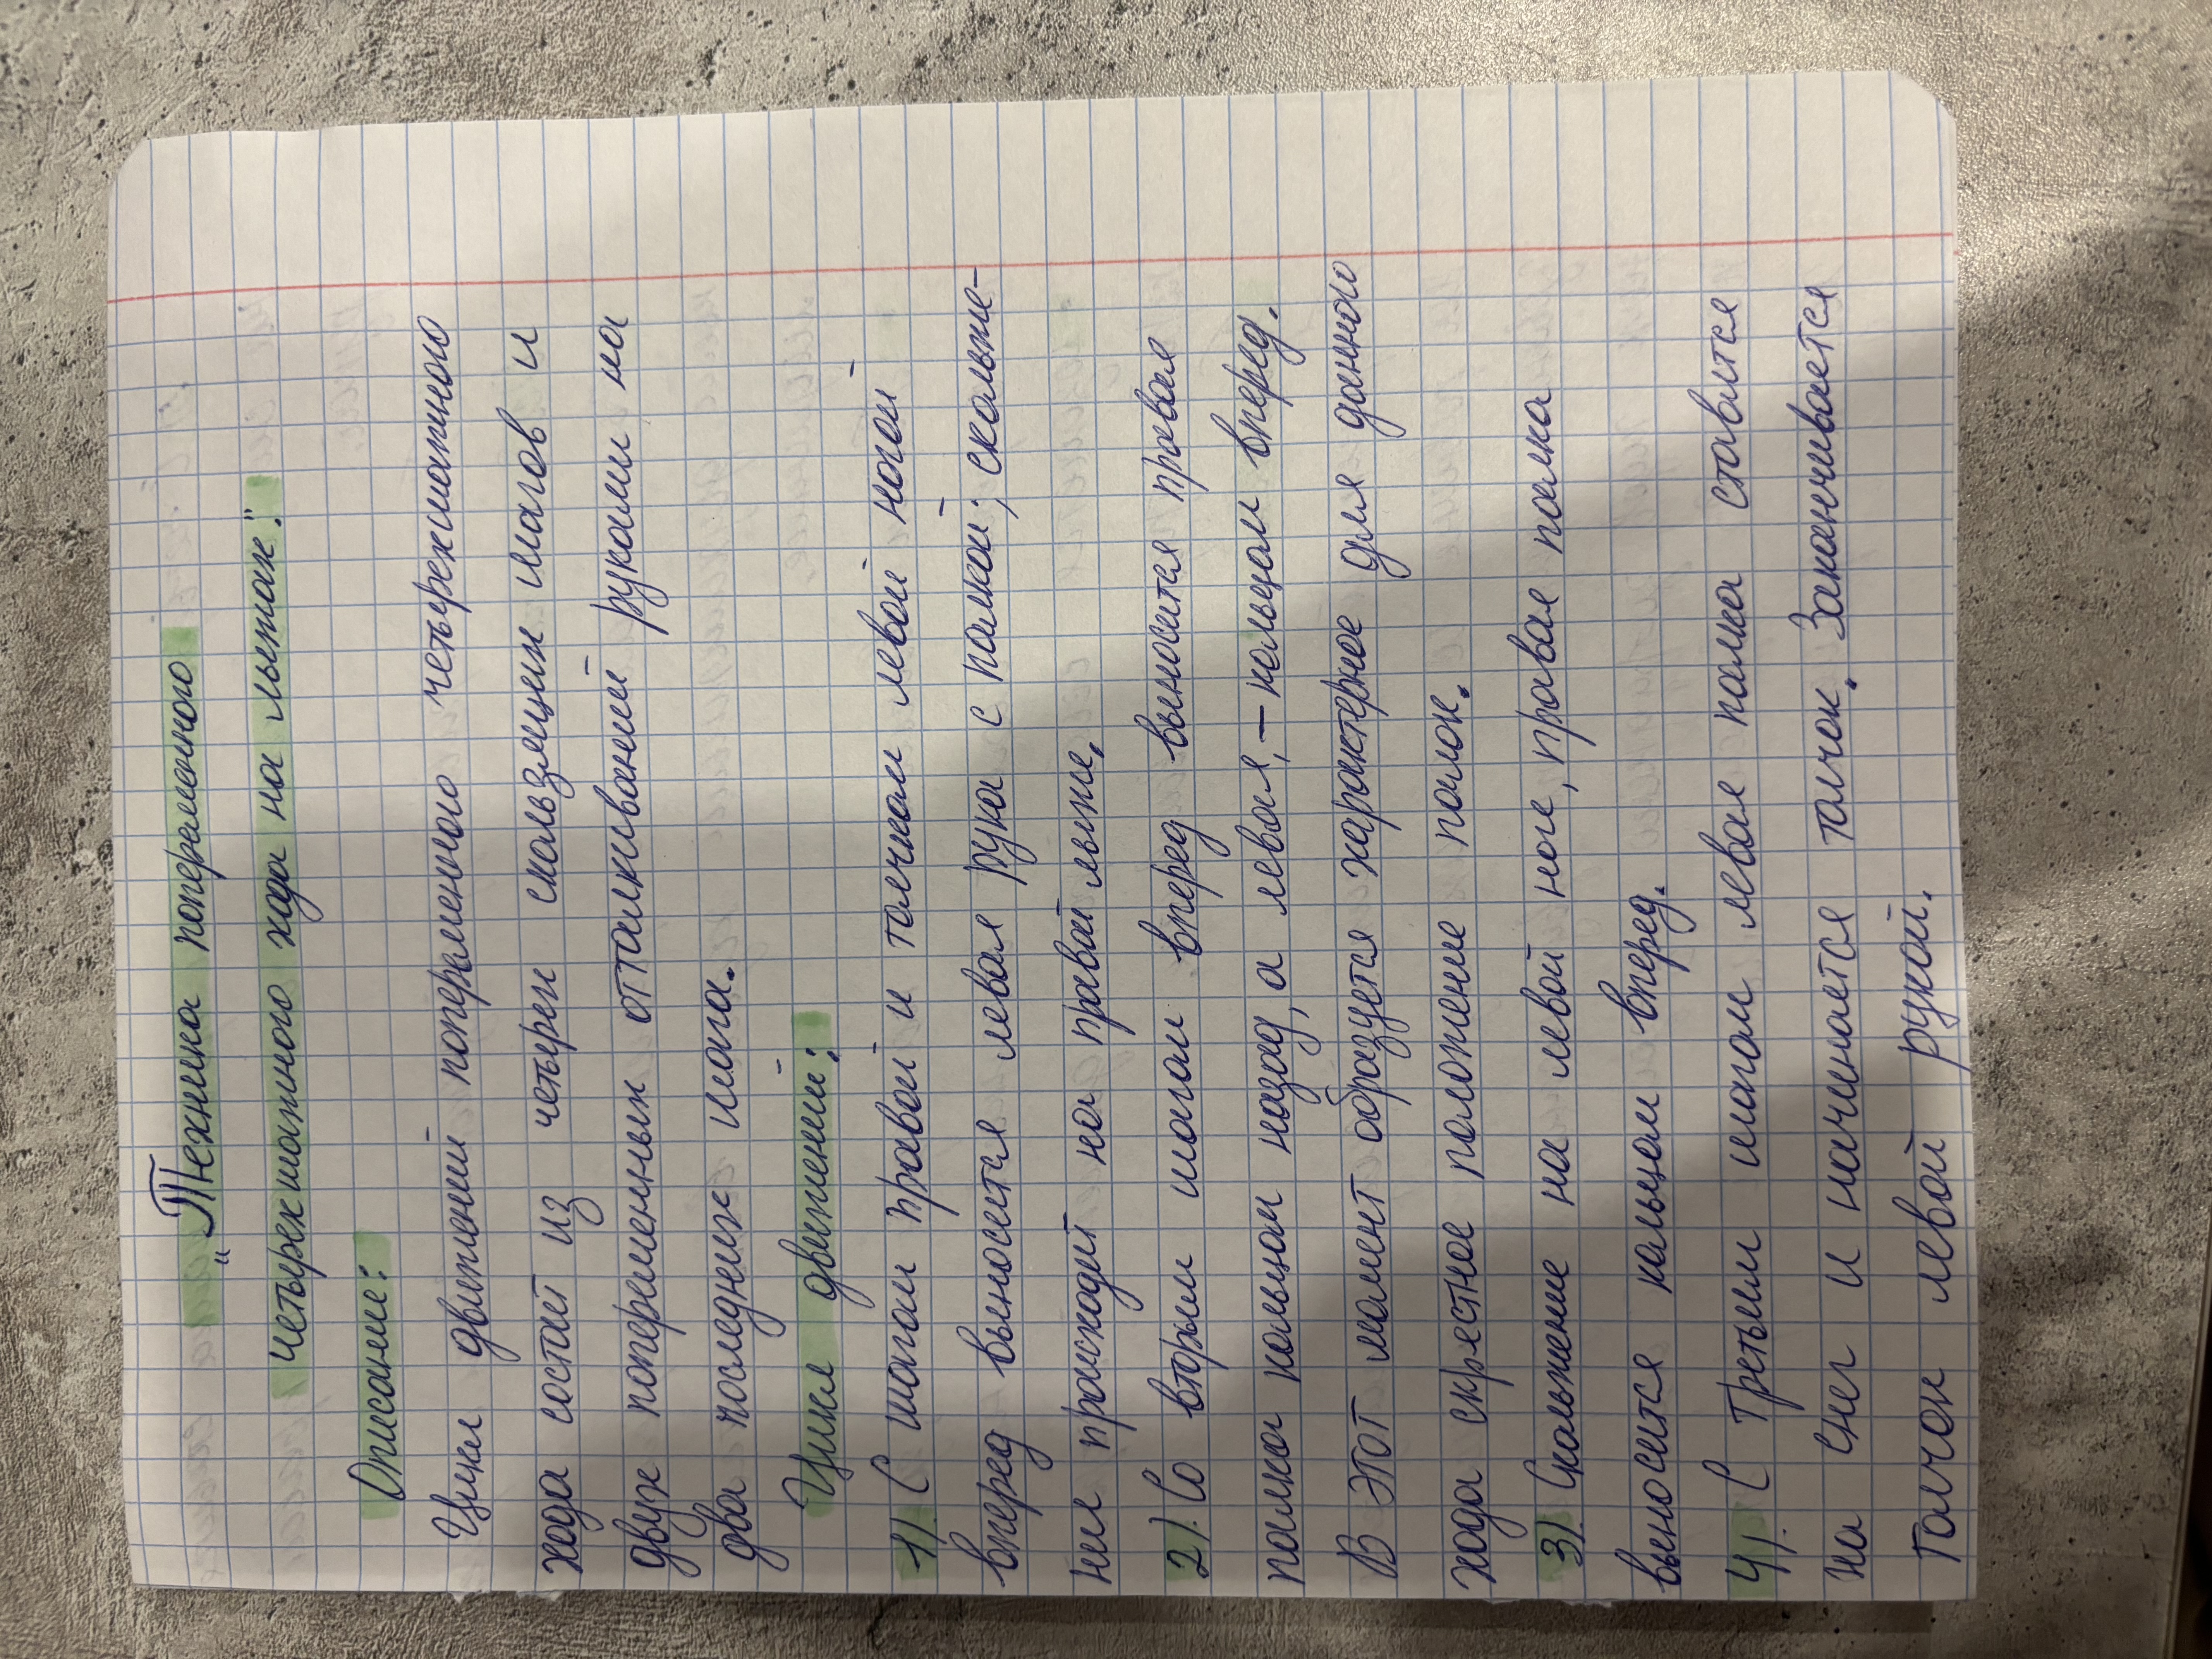 „Техника попеременного
четырехшагного хода на лыжах."
Описание:
Цикл движений попеременного четырехшагного
хода состоит из четырех скользящих шагов и
двух попеременных отталкиваний руками на
два последних шага.
Цикл движений:
1). С шагом правой и толчком левой ногой
вперед выносится левая рука с палкой; скольже-
ния происходит на правой лыже.
2). Со вторым шагом вперед выносится правая
палка кольцом назад, а левая, – кольцом вперед.
В этот момент образуется характерное для данного
хода скрестное положение палок.
3). Скольжение на левой ноге, правая палка
выносится кольцом вперед.
4). С третьим шагом левая палка ставится
на снег и начинается толчок. Заканчивается
толчок левой рукой.